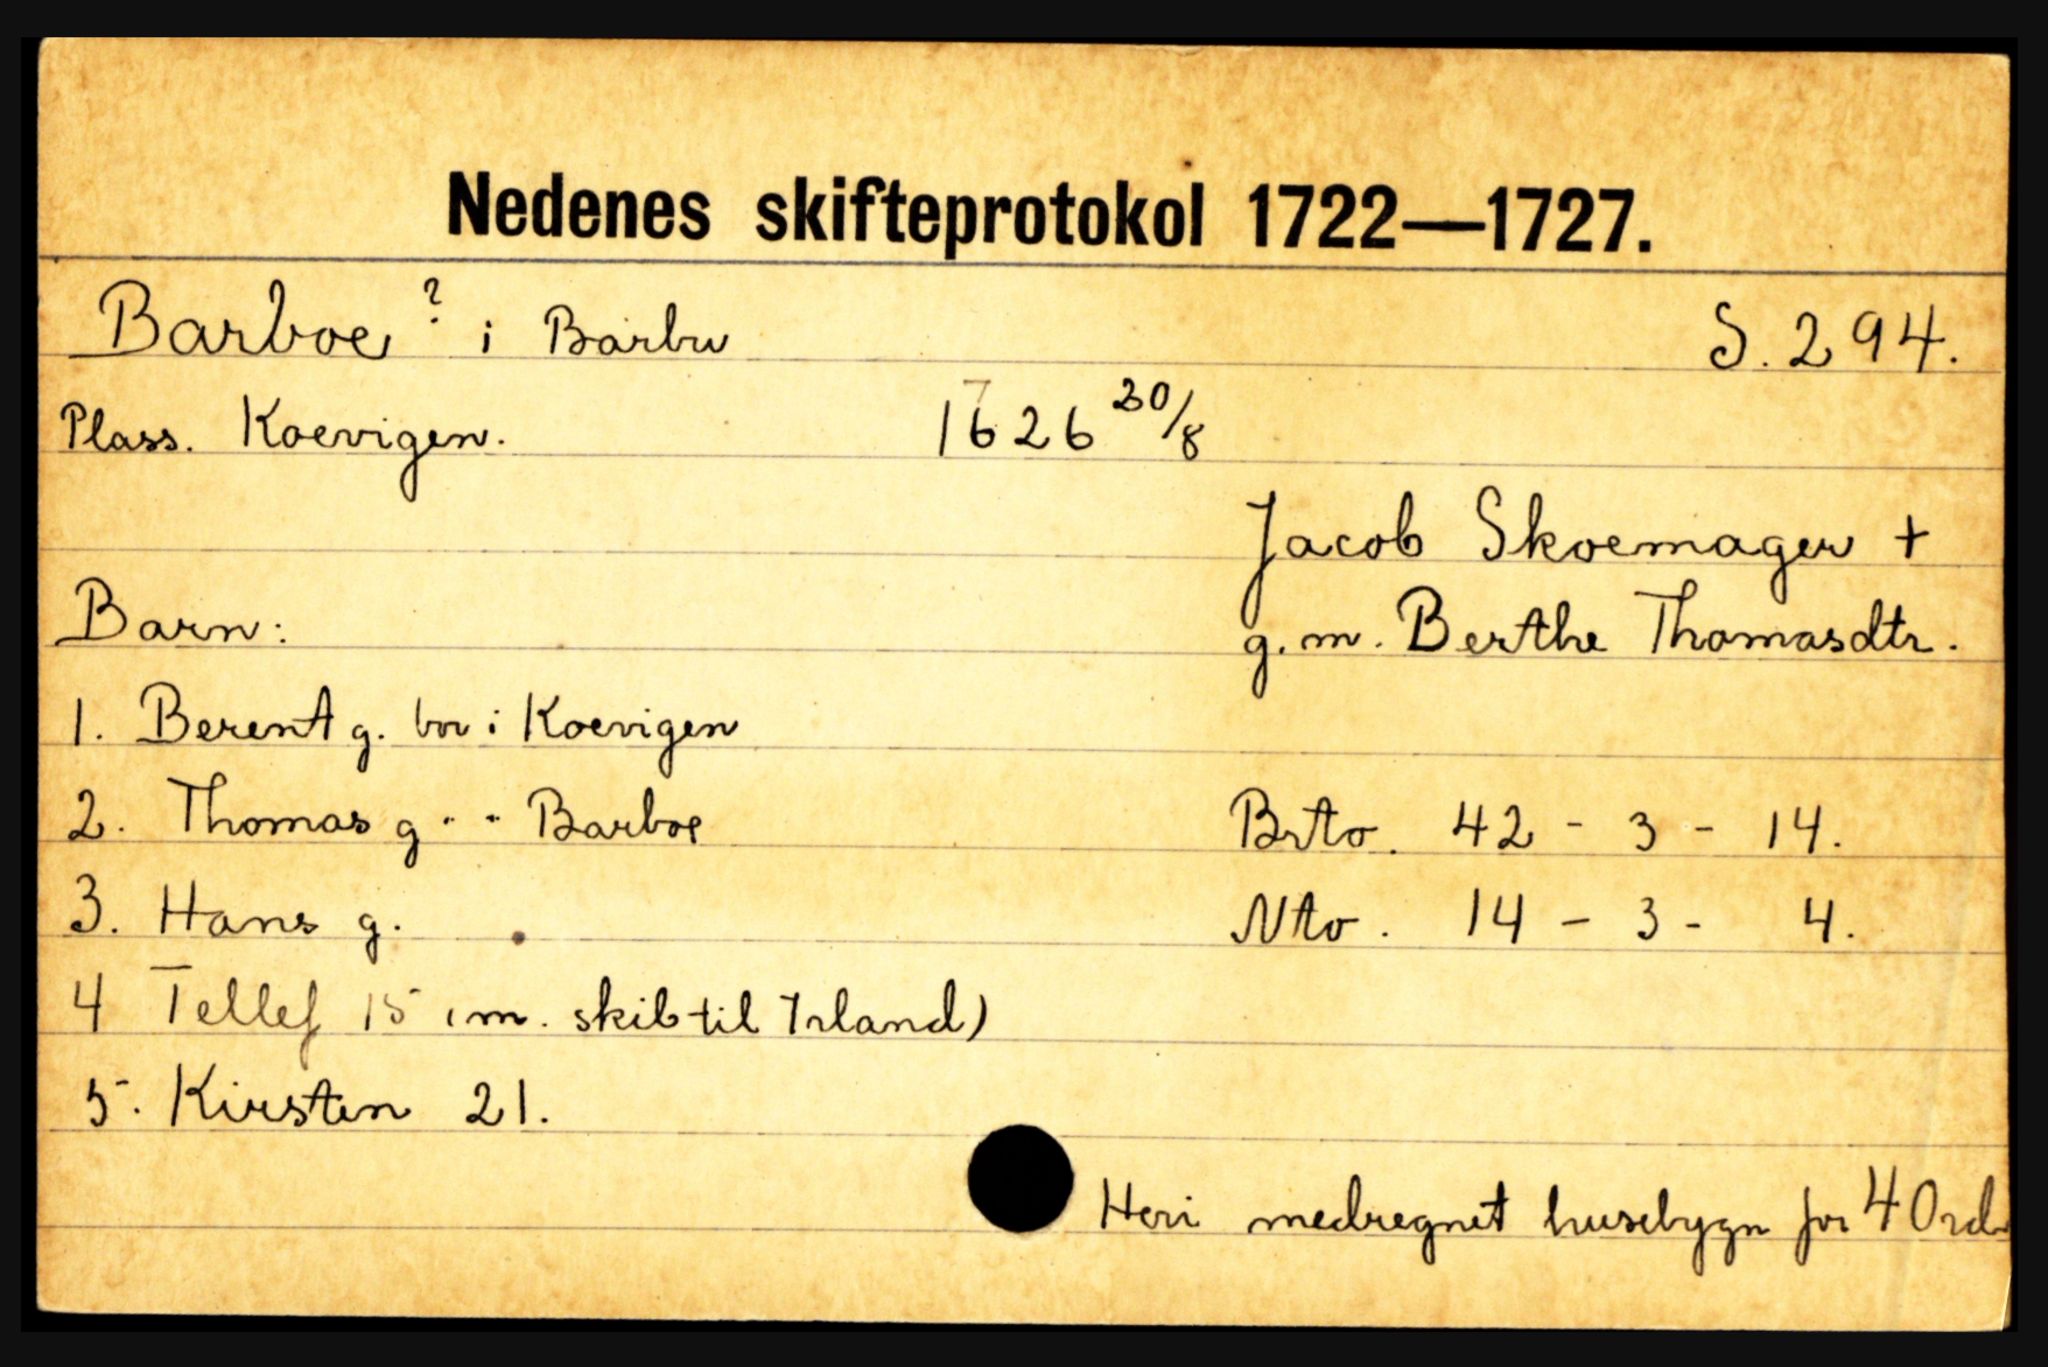 Nedenes skifteprotokol 1722—1727.
Barboe? i Barbu S. 294.
Plass. Koevigen. 1626 20/8
7
Jacob Skoemager +
Barn: g.m. Berthe Thomasdtr.
1. Berent g. bor i Koevigen
2. Thomas g " " Barboe Brto. 42 - 3 - 14.
3. Hans g. Nto. 14 - 3 - 4.
4 Tellef 15 (m. skib til Irland)
5. Kirsten 21.
Heri medregnet husebygn for 40 rdr